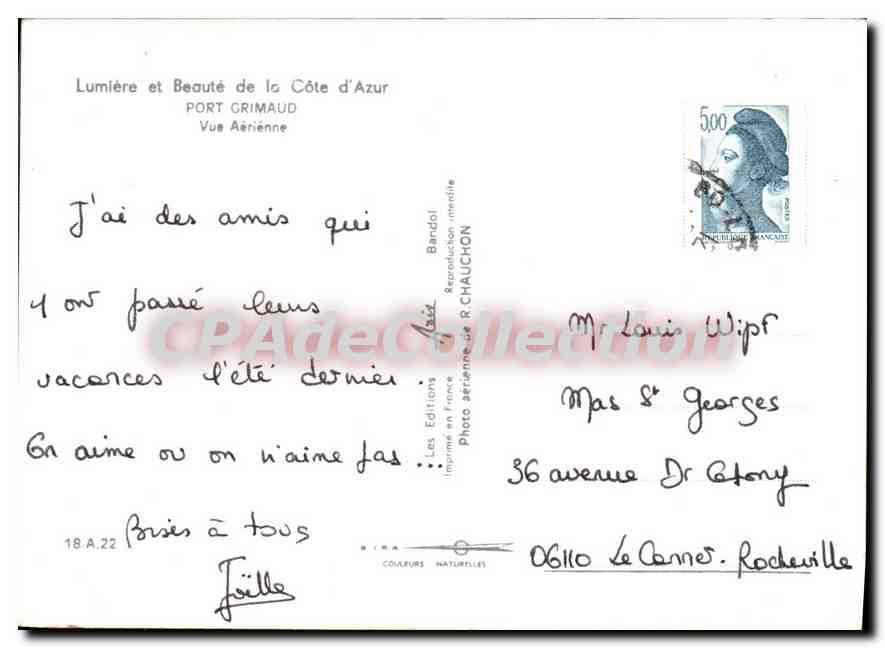 Lumière et Beauté de la Côte d'Azur
PORT GRIMAUD
Vue Aérienne
J'ai des amis qui
y ont passé leurs
vacances l'été dernier.
On aime ou on n'aime pas...
Bises à tous
Joëlle
18.A.22
Les Editions Aris Bandol
Imprimé en France Reproduction interdite
Photo aérienne de R. CHAUCHON
COULEURS NATURELLES
5,00
POSTES
REPUBLIQUE FRANÇAISE
Mr Louis Wipf
Mas St Georges
36 avenue Dr
06110 Le Cannet. Rocheville
CPAdeCollection